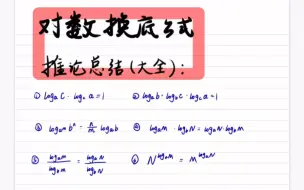 对数换底公式
推论总结(大全):
① logₐC · log꜀a = 1 ② logₐb · log_b c · log_c a = 1
③ log_{a^m} b^n = n/m logₐb ④ logₐM · log_b N = logₐN · log_b M
⑤ logₐM / log_b M = logₐN / log_b N ⑥ N^{logₐM} = M^{logₐN}